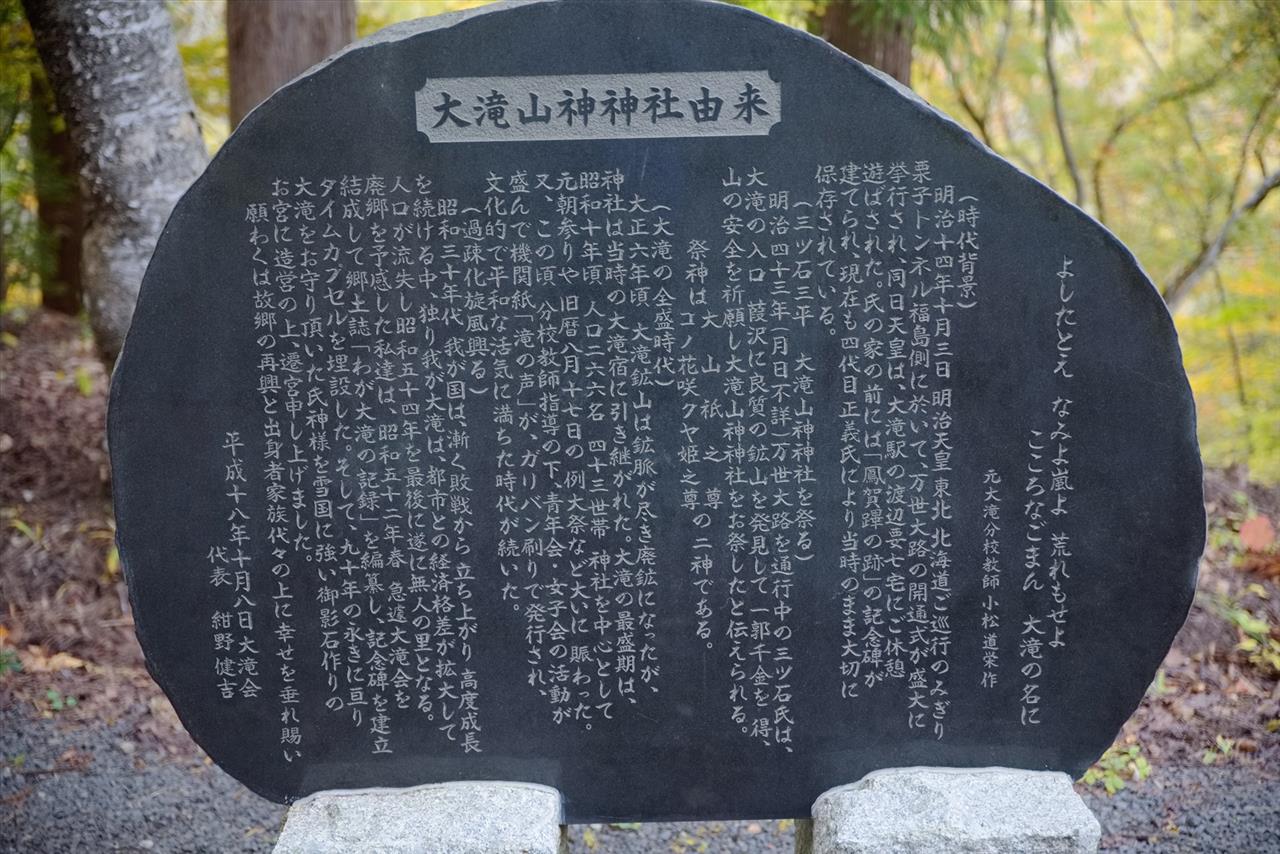 大滝山神神社由来
よしたとえ なみよ嵐よ 荒れもせよ
こころなごまん 大滝の名に
元大滝分校教師 小松道栄作
(時代背景)
明治十四年十月三日 明治天皇 東北 北海道ご巡行のみぎり
栗子トンネル福島側に於いて、万世大路の開通式が盛大に
挙行され、同日天皇は、大滝駅の渡辺要七宅にご休憩
遊ばされた。氏の家の前には「鳳賀蹕の跡」の記念碑が
建てられ、現在も四代目正義氏により当時のまま大切に
保存されている。
(三ツ石三平 大滝山神神社を祭る)
明治四十三年(月日不詳)万世大路を通行中の三ツ石氏は、
大滝の入口 葭沢に良質の鉱山を発見して 一郭千金を得、
山の安全を祈願し大滝山神神社をお祭したと伝えられる。
祭神は大 山 祇 之 尊
コノ花咲クヤ姫之尊の二神である。
(大滝の全盛時代)
大正六年頃 大滝鉱山は鉱脈が尽き廃鉱になったが、
神社は当時の大滝宿に引き継がれた。大滝の最盛期は、
昭和十年頃 人口二六六名 四十三世帯 神社を中心として
元朝参りや 旧暦八月十七日の例大祭など大いに賑わった。
又、この頃 分校教師指導の下、青年会・女子会の活動が
盛んで機関紙「滝の声」が、ガリバン刷りで発行され、
文化的で平和な活気に満ちた時代が続いた。
(過疎化旋風興る)
昭和三十年代 我が国は、漸く敗戦から立ち上がり 高度成長
を続ける中、独り我が大滝は、都市との経済格差が拡大して
人口が流失し 昭和五十四年を最後に遂に無人の里となる。
廃郷を予感した私達は、昭和五十二年春 急遽大滝会を
結成して郷土誌「わが大滝の記録」を編纂し、記念碑を建立
タイムカプセルを埋設した。そして、九十年の永きに亘り
大滝をお守り頂いた氏神様を雪国に強い御影石作りの
お宮に造営の上、遷宮申し上げました。
願わくは故郷の再興と出身者家族代々の上に幸せを垂れ賜い
平成十八年十月八日 大滝会
代表 紺野健吉